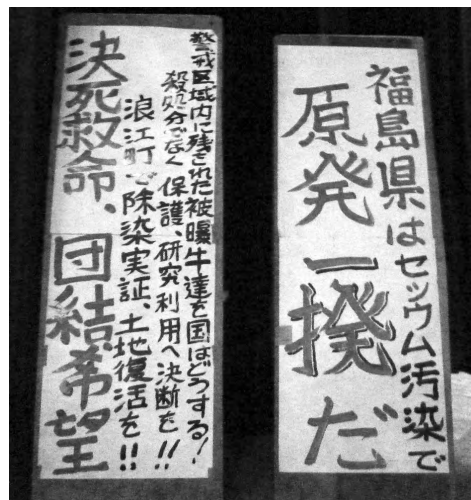 福島県はセシウム汚染で
原発一揆だ
警戒区域内に残された被曝牛達を国はどうする!
殺処分でなく保護、研究利用へ決断を!!
浪江町で除染実証、土地復活を!!
決死救命、団結希望